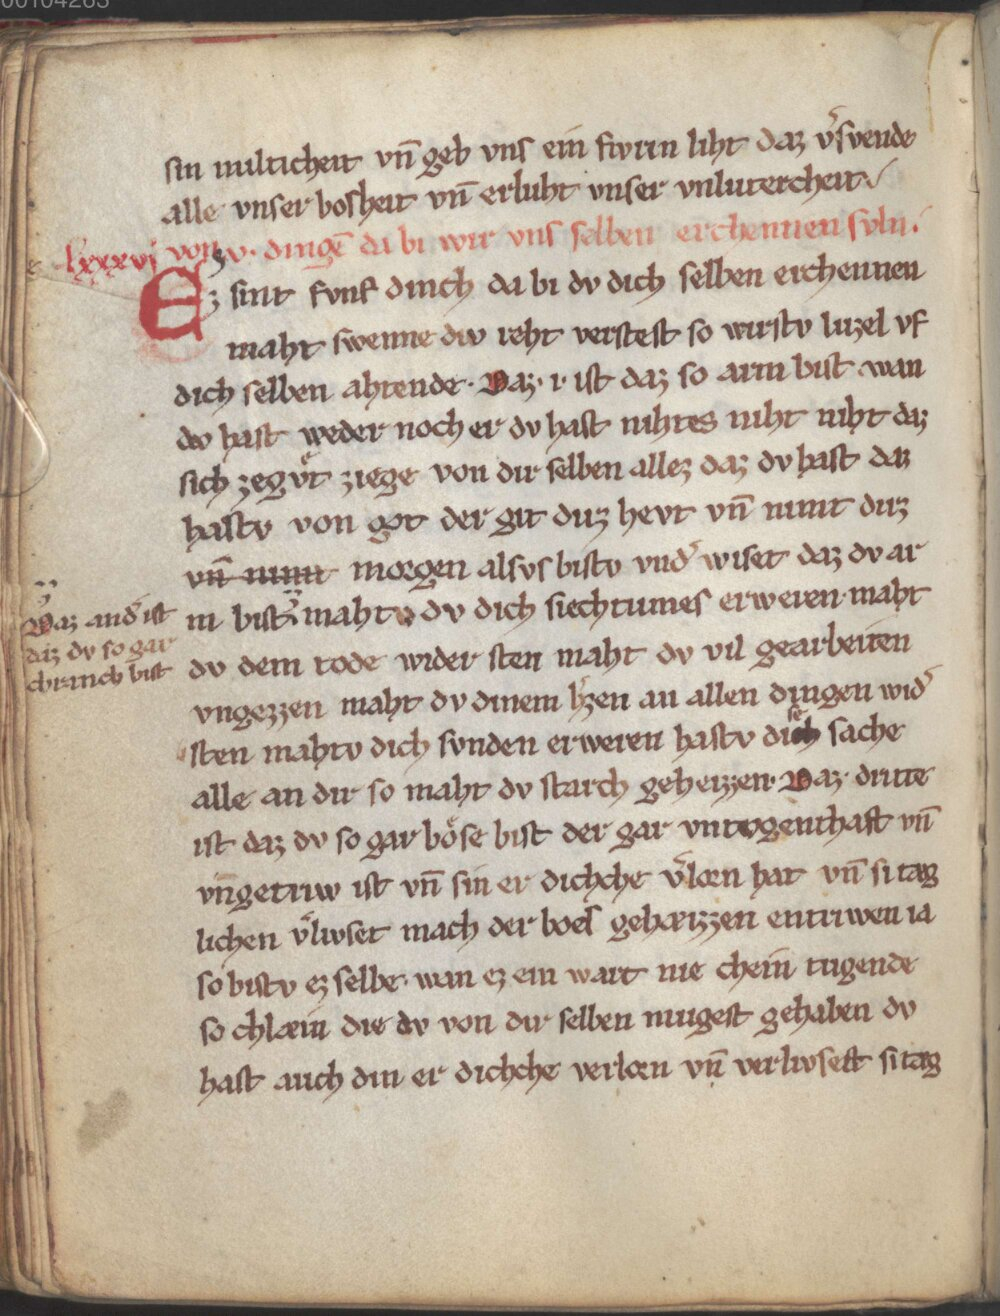 00104263
sin milticheit vn̄ geb vns ein fiwrin liht daz v͛swende
alle vnser bosheit vn̄ erluht vnser vnlutercheit.
lxxxvj von .v. dingē da bi wir vns selben erchennen svln.
Ez sint fvnf dinch da bi dv dich selben erchennen
maht swenne div reht verstest so wirstv luzel vf
dich selben ahtende. Daz .i. ist daz so arm bist wan
dv hast weder noch er dv hast nihtes niht niht daz
sich ze gvͦt ziege von dir selben allez daz dv hast daz
hastv von got der git duz hevt vn̄ nimt duz
vn̄ nimt morgen alsvs bistv vnd͛ wiset daz dv ar
m bist maht dv dich siechtumes erweren maht
Daz and͛ ist
daz dv so gar
chranch bist
dv dem tode wider sten maht dv vil gearbeiten
vngezzen maht dv dinem h͛zen an allen dingen wid͛
sten mahtv dich svnden erweren hastv dise sache
alle an dir so maht dv starch geheizzen. Daz dritte
ist daz dv so gar boͤse bist der gar vntvgenthaft vn̄
vngetriw ist vn̄ sin er dichche v͛lorn hat vn̄ si tag
lichen v͛livset mach der boes gehæizzen entriwen ia
so bistv ez selbe. wan ez ein wart nie chein tugende
so chlæin die dv von dir selben mugest gehaben dv
hast auch din er dichche verlorn vn̄ verlivsest si tag